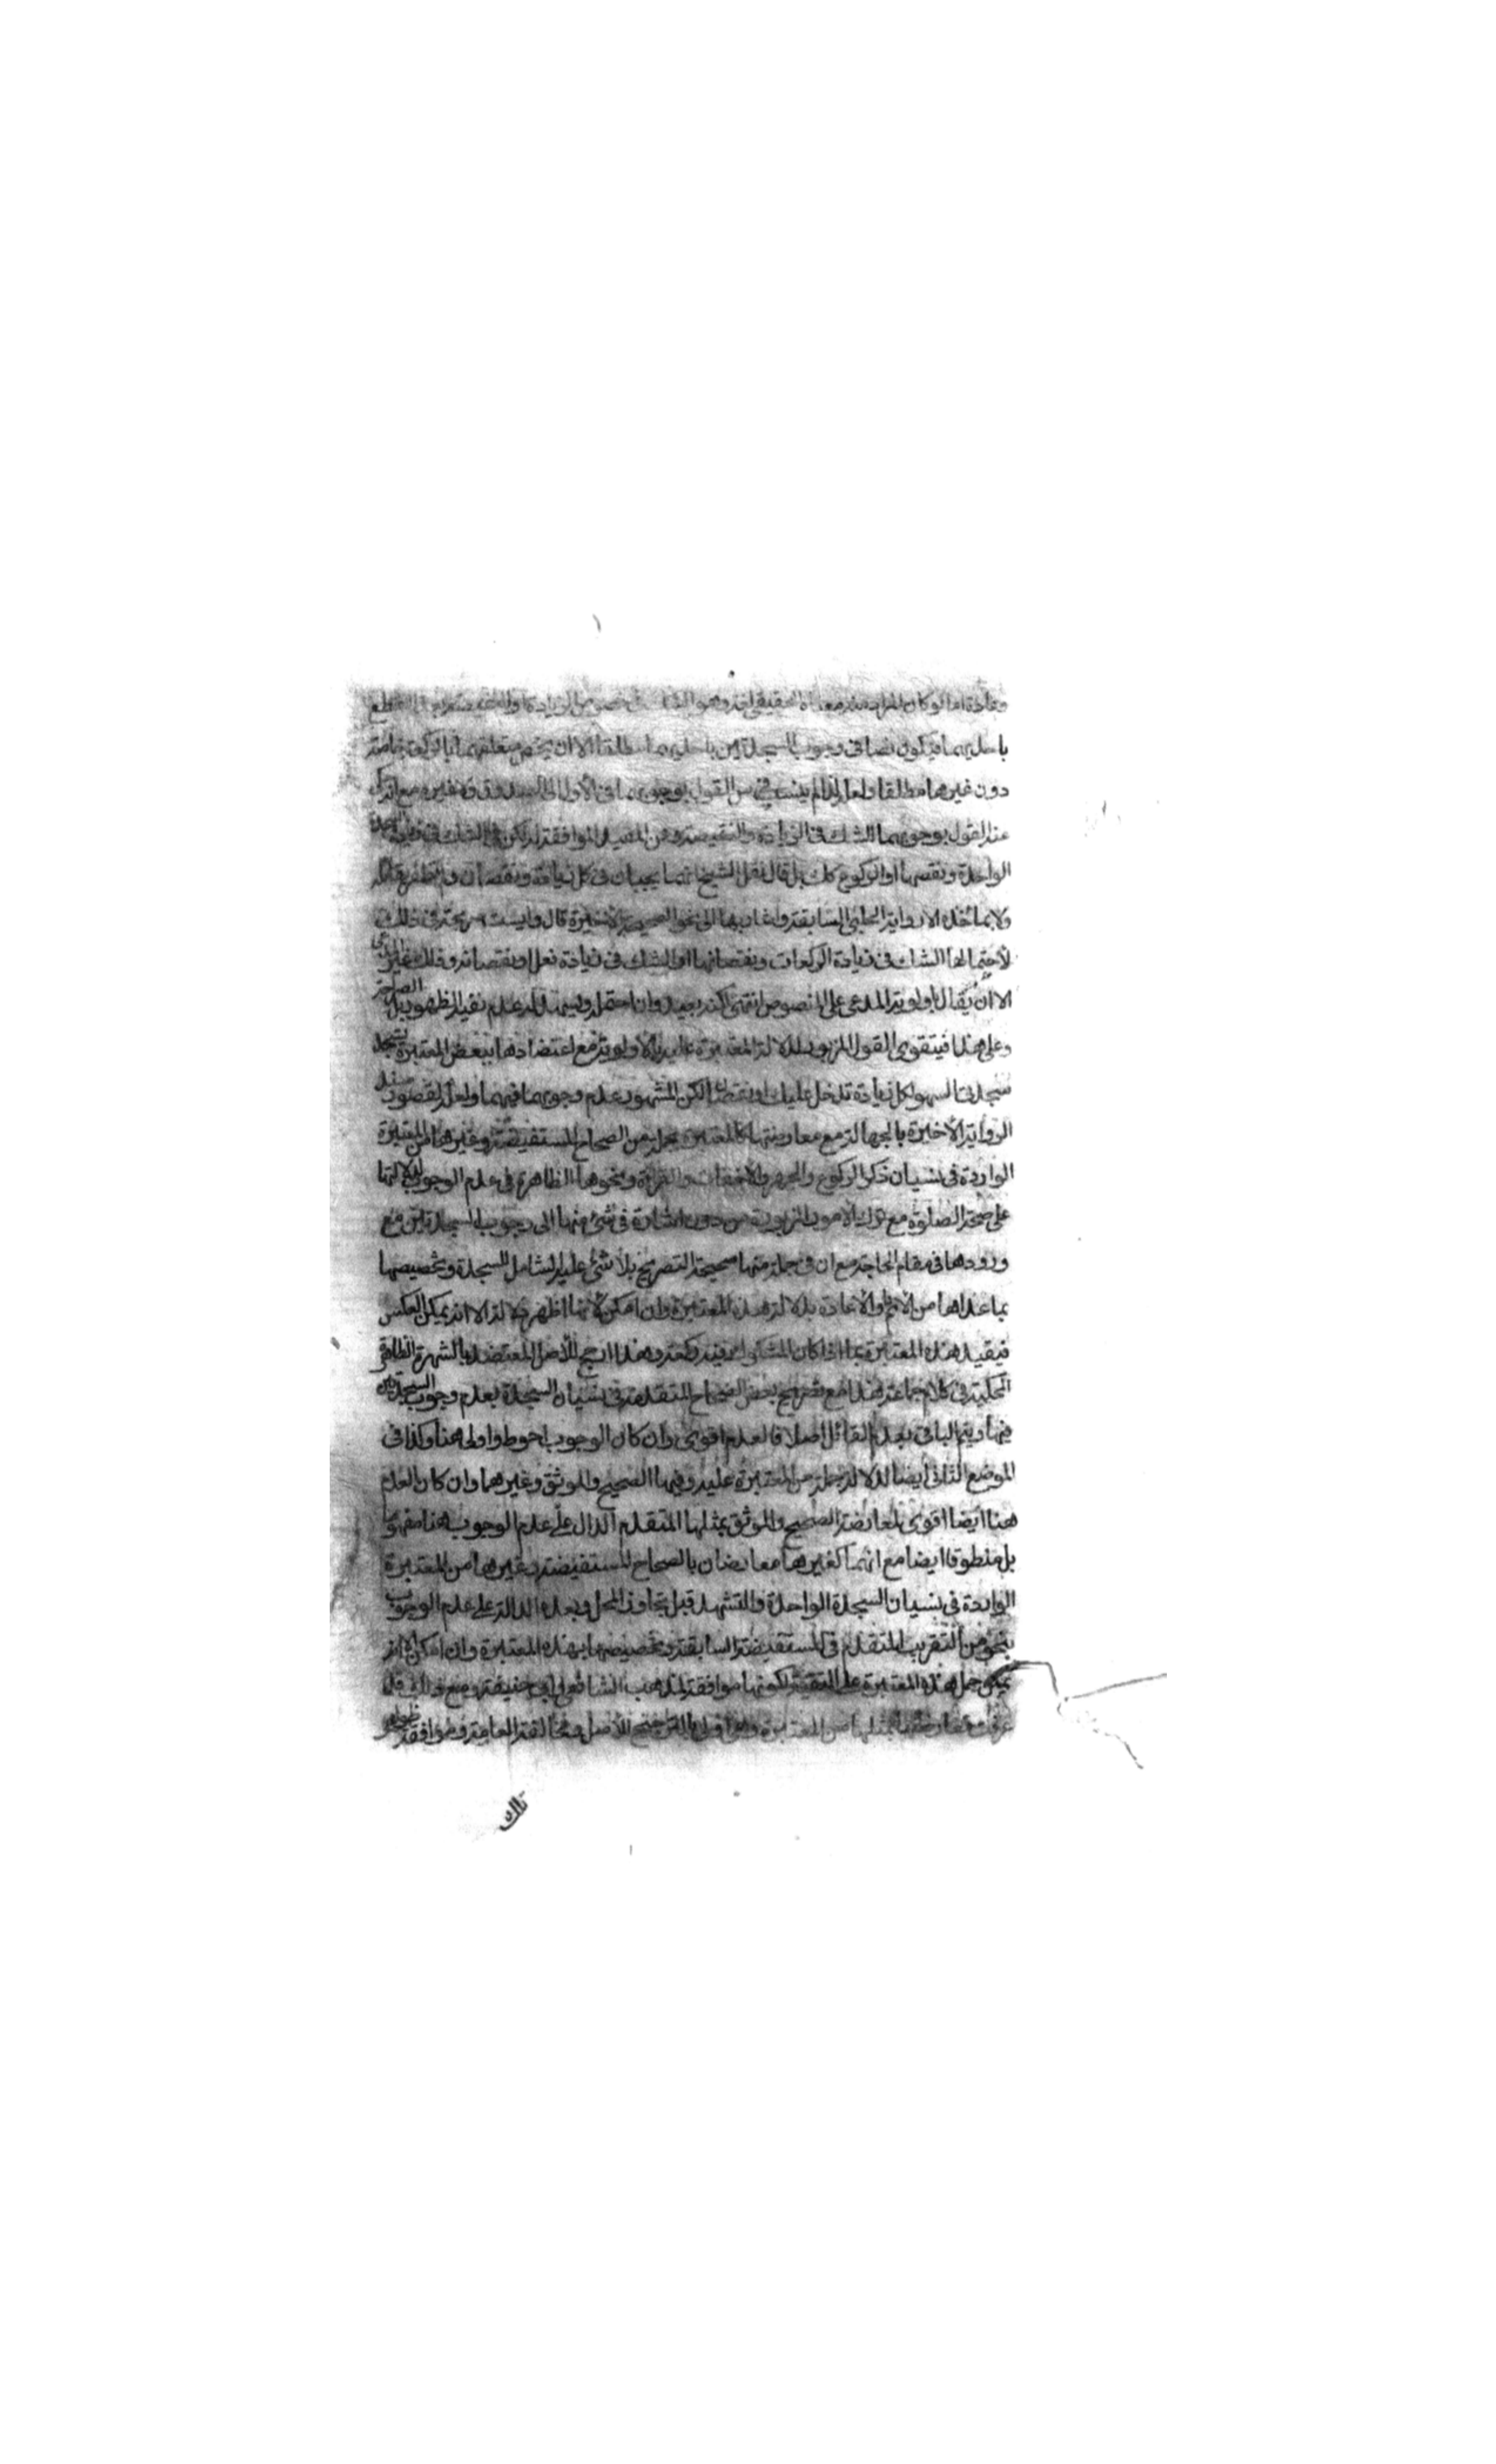 وعادة اما لو كان المراد منه معناه الحقيقي وهو الشك في خصوص الزيادة او النقيصة القطع
باحديهما فيكون نصا في وجوب السجدتين باحديهما مطلقا الا ان يخص متعلقهما بالركعة خاصة
دون غيرهما مطلقا ولعله لذا لم ينسب في س القول بوجوبهما في الاول الا الى الصدوق وغيره مع انه
عند القول بوجوبهما الشك في الزيادة والنقيصة وعن المفيد الموافقة له لكن في الشك في زيادة السجدة
الواحدة ونقصها او الركوع كك بل قال نقل الشيخ انهما يجبان في كل زيادة ونقصان ولم نظفر بقائله
ولا بمأخذه الا رواية الحلبي السابقة واشار بها الى نحو الصحيحة الاخيرة قال وليست صريحة في ذلك
لاحتمالها الشك في زيادة الركعات ونقصانها او الشك في زيادة فعل او نقصانه وذلك غير المدعى
الا ان يقال باولوية المدعى على المنصوص انتهى لكنه بعيد وان احتمل ويشهد له عدم نفيه الظهور بل الصراحة
وعلى هذا فيتقوى القول المزبور لدلالة المعتبرة عليه بالاولوية مع اعتضادها ببعض المعتبرة تسجد
سجدتي السهو لكل زيادة تدخل عليك او نقصان لكن المشهور عدم وجوبهما فيهما ولعله لقصور سند
الرواية الاخيرة بالجهالة مع معارضتها كالمعتبرة بجملة من الصحاح المستفيضة وغيرها من المعتبرة
الواردة في نسيان ذكر الركوع والجهر والاخفات والقراءة ونحوها الظاهرة في عدم الوجوب لدلالتها
على صحة الصلوة مع ترك الامور المزبورة من دون اشارة في شئ منها الى وجوب السجدتين مع
ورودها في مقام الحاجة مع ان في جملة منها صحيحة التصريح بلا شئ عليه الشامل للسجدة وتخصيصها
بما عداها من الاثم والاعادة بدلالة هذه المعتبرة وان امكن لانها اظهر دلالة الا انه يمكن العكس
فيقيد هذه المعتبرة بما اذا كان المشكوك فيه ركعة وهذا ارجح للاصل المعتضد بالشهرة الظاهرة
المحكية في كلام جماعة هذا مع تصريح بعض الصحاح المتقدمة في نسيان السجدة بعدم وجوب السجدتين
فيها ويتم الباقي بعدم القائل اصلا فالعدم اقوى وان كان الوجوب احوط واولى هنا وكذا في
الموضع الثاني ايضا لدلالة جملة من المعتبرة عليه وفيها الصحيح والموثق وغيرهما وان كان العدم
هنا ايضا اقوى لمعارضة الصحيح والموثق بمثلها المتقدم الدال على عدم الوجوب هنا مفهوما
بل منطوقا ايضا مع انهما كغيرهما معارضان بالصحاح المستفيضة وغيرها من المعتبرة
الواردة في نسيان السجدة الواحدة والتشهد قبل تجاوز المحل وبعده الدالة على عدم الوجوب
بنحو من التقريب المتقدم في المستفيضة السابقة وتخصيصها بهذه المعتبرة وان امكن الا انه
يمكن حمل هذه المعتبرة على التقية لكونها موافقة لمذهب الشافعي وابي حنيفة ومع ذلك قد
عرفت معارضتها بمثلها من المعتبرة بالترجيح للاصل ومخالفة العامة وموافقة ظواهر
تلك